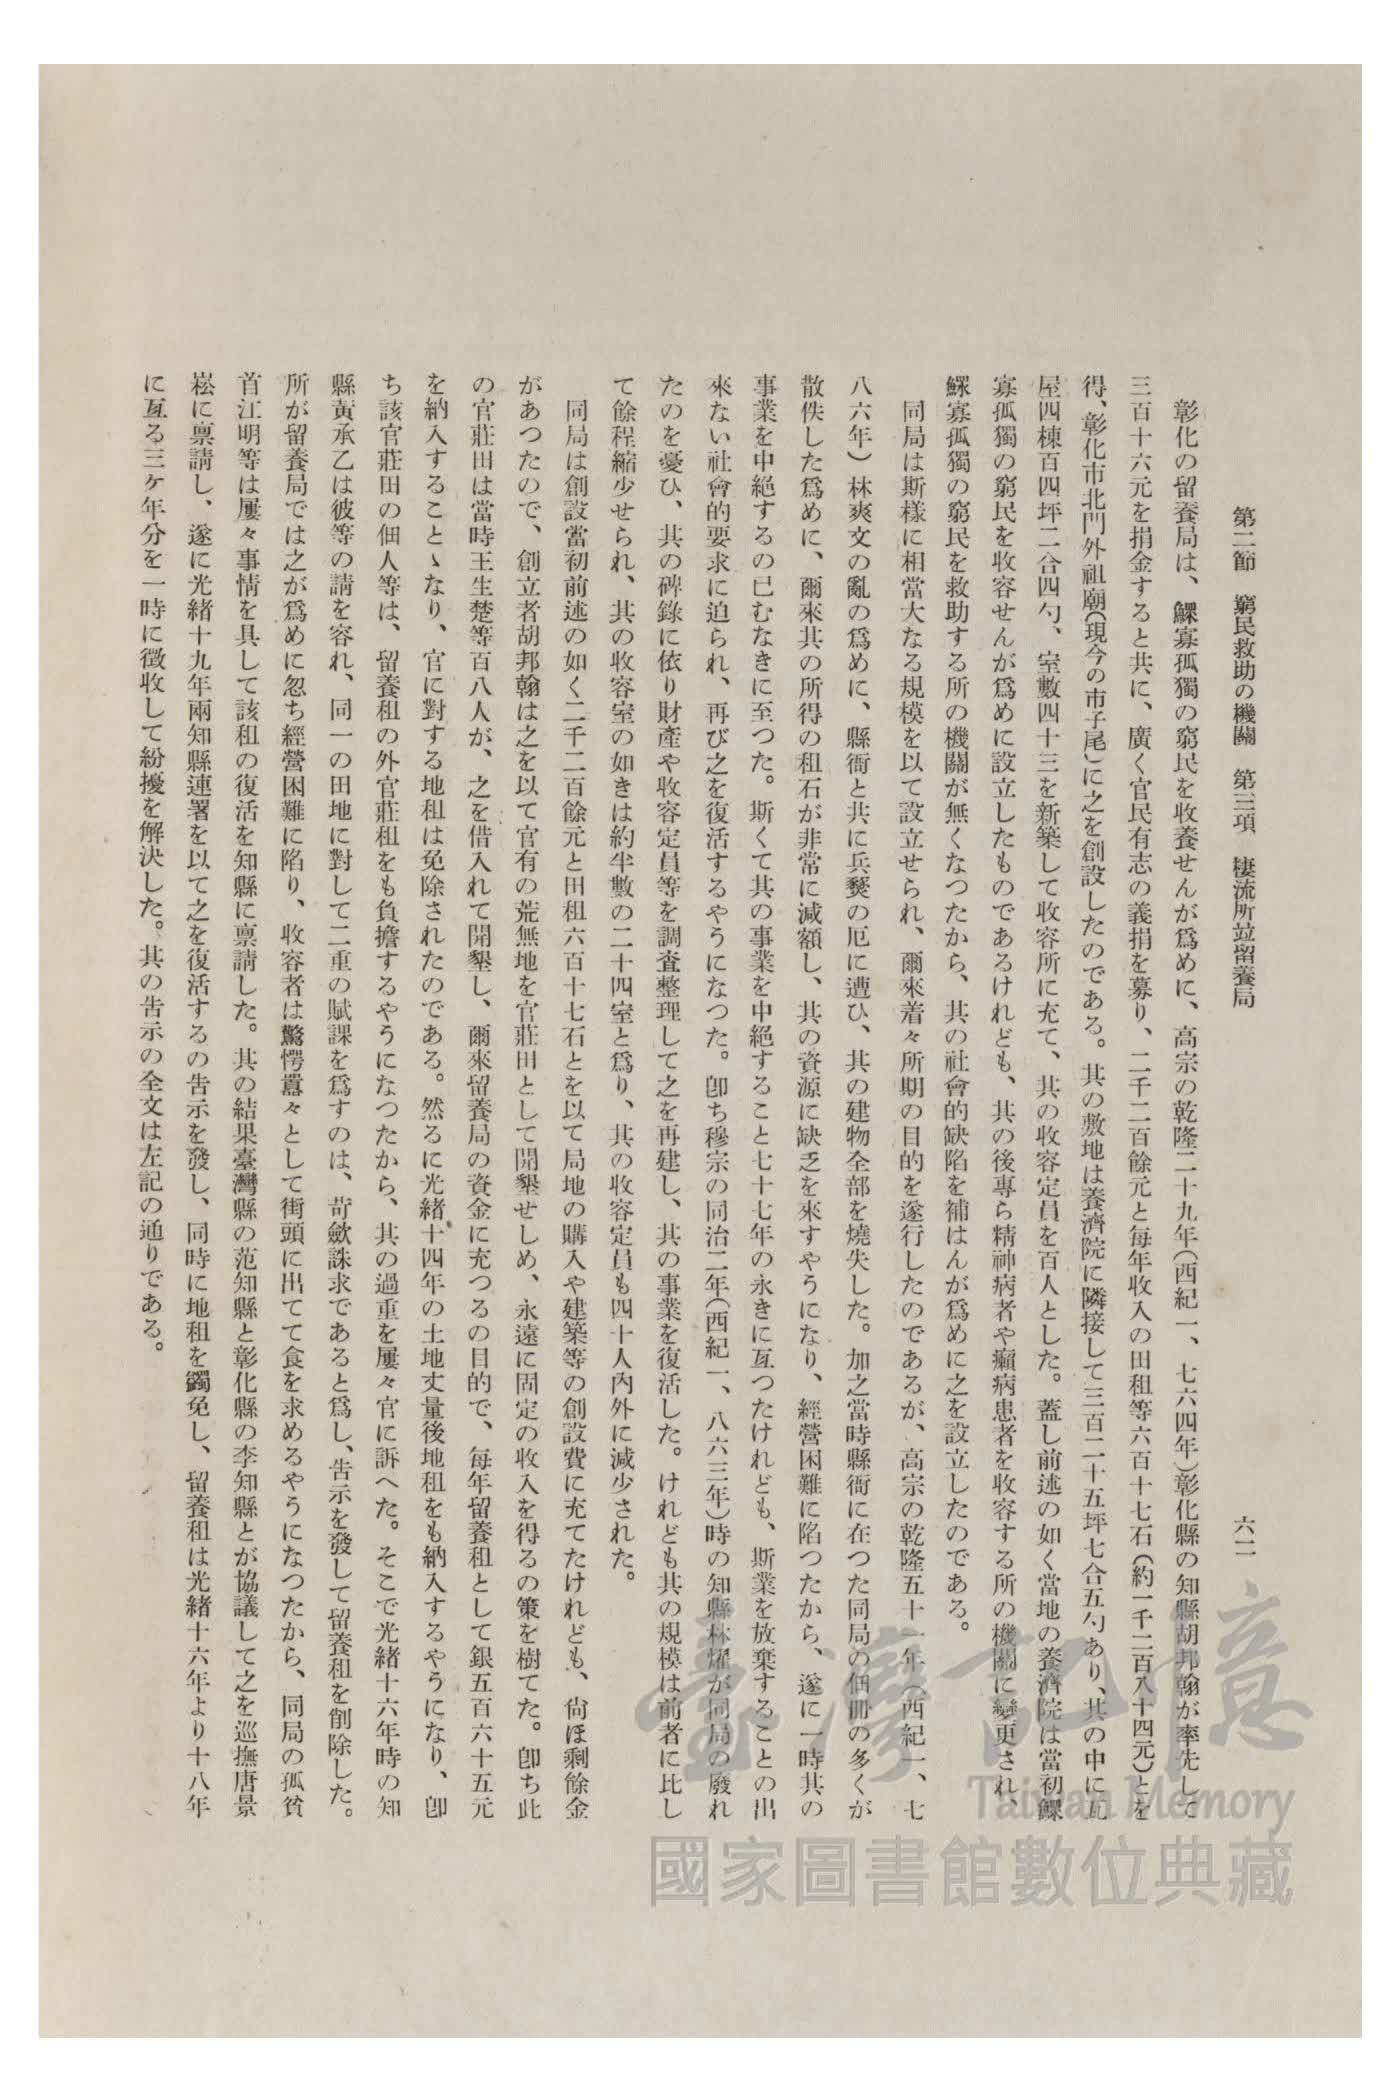 第二節　窮民救助の機關　第三項　棲流所竝留養局　六二
彰化の留養局は、鰥寡孤獨の窮民を收養せんが爲めに、高宗の乾隆二十九年(西紀一、七六四年)彰化縣の知縣胡邦翰が率先して
三百十六元を捐金すると共に、廣く官民有志の義捐を募り、二千二百餘元と每年收入の田租等六百十七石(約一千二百八十四元)とを
得、彰化市北門外祖廟(現今の市子尾)に之を創設したのである。其の敷地は養濟院に隣接して三百二十五坪七合五勺あり、其の中に瓦
屋四棟百四坪二合四勺、室數四十三を新築して收容所に充て、其の收容定員を百人とした。蓋し前述の如く當地の養濟院は當初鰥
寡孤獨の窮民を收容せんが爲めに設立したものであるけれども、其の後專ら精神病者や癩病患者を收容する所の機關に變更され、
鰥寡孤獨の窮民を救助する所の機關が無くなつたから、其の社會的缺陷を補はんが爲めに之を設立したのである。
同局は斯樣に相當大なる規模を以て設立せられ、爾來着々所期の目的を遂行したのであるが、高宗の乾隆五十一年(西紀一、七
八六年)林爽文の亂の爲めに、縣衙と共に兵燹の厄に遭ひ、其の建物全部を燒失した。加之當時縣衙に在つた同局の佃冊の多くが
散佚した爲めに、爾來其の所得の租石が非常に減額し、其の資源に缺乏を來すやうになり、經營困難に陷つたから、遂に一時其の
事業を中絕するの已むなきに至つた。斯くて其の事業を中絕すること七十七年の永きに亙つたけれども、斯業を放棄することの出
來ない社會的要求に迫られ、再び之を復活するやうになつた。卽ち穆宗の同治二年(西紀一、八六三年)時の知縣林燿が同局の廢れ
たのを憂ひ、其の碑錄に依り財產や收容定員等を調査整理して之を再建し、其の事業を復活した。けれども其の規模は前者に比し
て餘程縮少せられ、其の收容室の如きは約半數の二十四室と爲り、其の收容定員も四十人內外に減少された。
同局は創設當初前述の如く二千二百餘元と田租六百十七石とを以て局地の購入や建築等の創設費に充てたけれども、尙ほ剩餘金
があつたので、創立者胡邦翰は之を以て官有の荒蕪地を官莊田として開墾せしめ、永遠に固定の收入を得るの策を樹てた。卽ち此
の官莊田は當時王生楚等百八人が、之を借入れて開墾し、爾來留養局の資金に充つるの目的で、每年留養租として銀五百六十五元
を納入することゝなり、官に對する地租は免除されたのである。然るに光緖十四年の土地丈量後地租をも納入するやうになり、卽
ち該官莊田の佃人等は、留養租の外官莊租をも負擔するやうになつたから、其の過重を屢々官に訴へた。そこで光緖十六年時の知
縣黃承乙は彼等の請を容れ、同一の田地に對して二重の賦課を爲すのは、苛斂誅求であると爲し、吿示を發して留養租を削除した。
所が留養局では之が爲めに忽ち經營困難に陷り、收容者は驚愕囂々として街頭に出てて食を求めるやうになつたから、同局の孤貧
首江明等は屢々事情を具して該租の復活を知縣に稟請した。其の結果臺灣縣の范知縣と彰化縣の李知縣とが協議して之を巡撫唐景
崧に稟請し、遂に光緖十九年兩知縣連署を以て之を復活するの吿示を發し、同時に地租を蠲免し、留養租は光緖十六年より十八年
に亙る三ケ年分を一時に徵收して紛擾を解決した。其の吿示の全文は左記の通りである。
臺灣記憶
Taiwan Memory
國家圖書館數位典藏